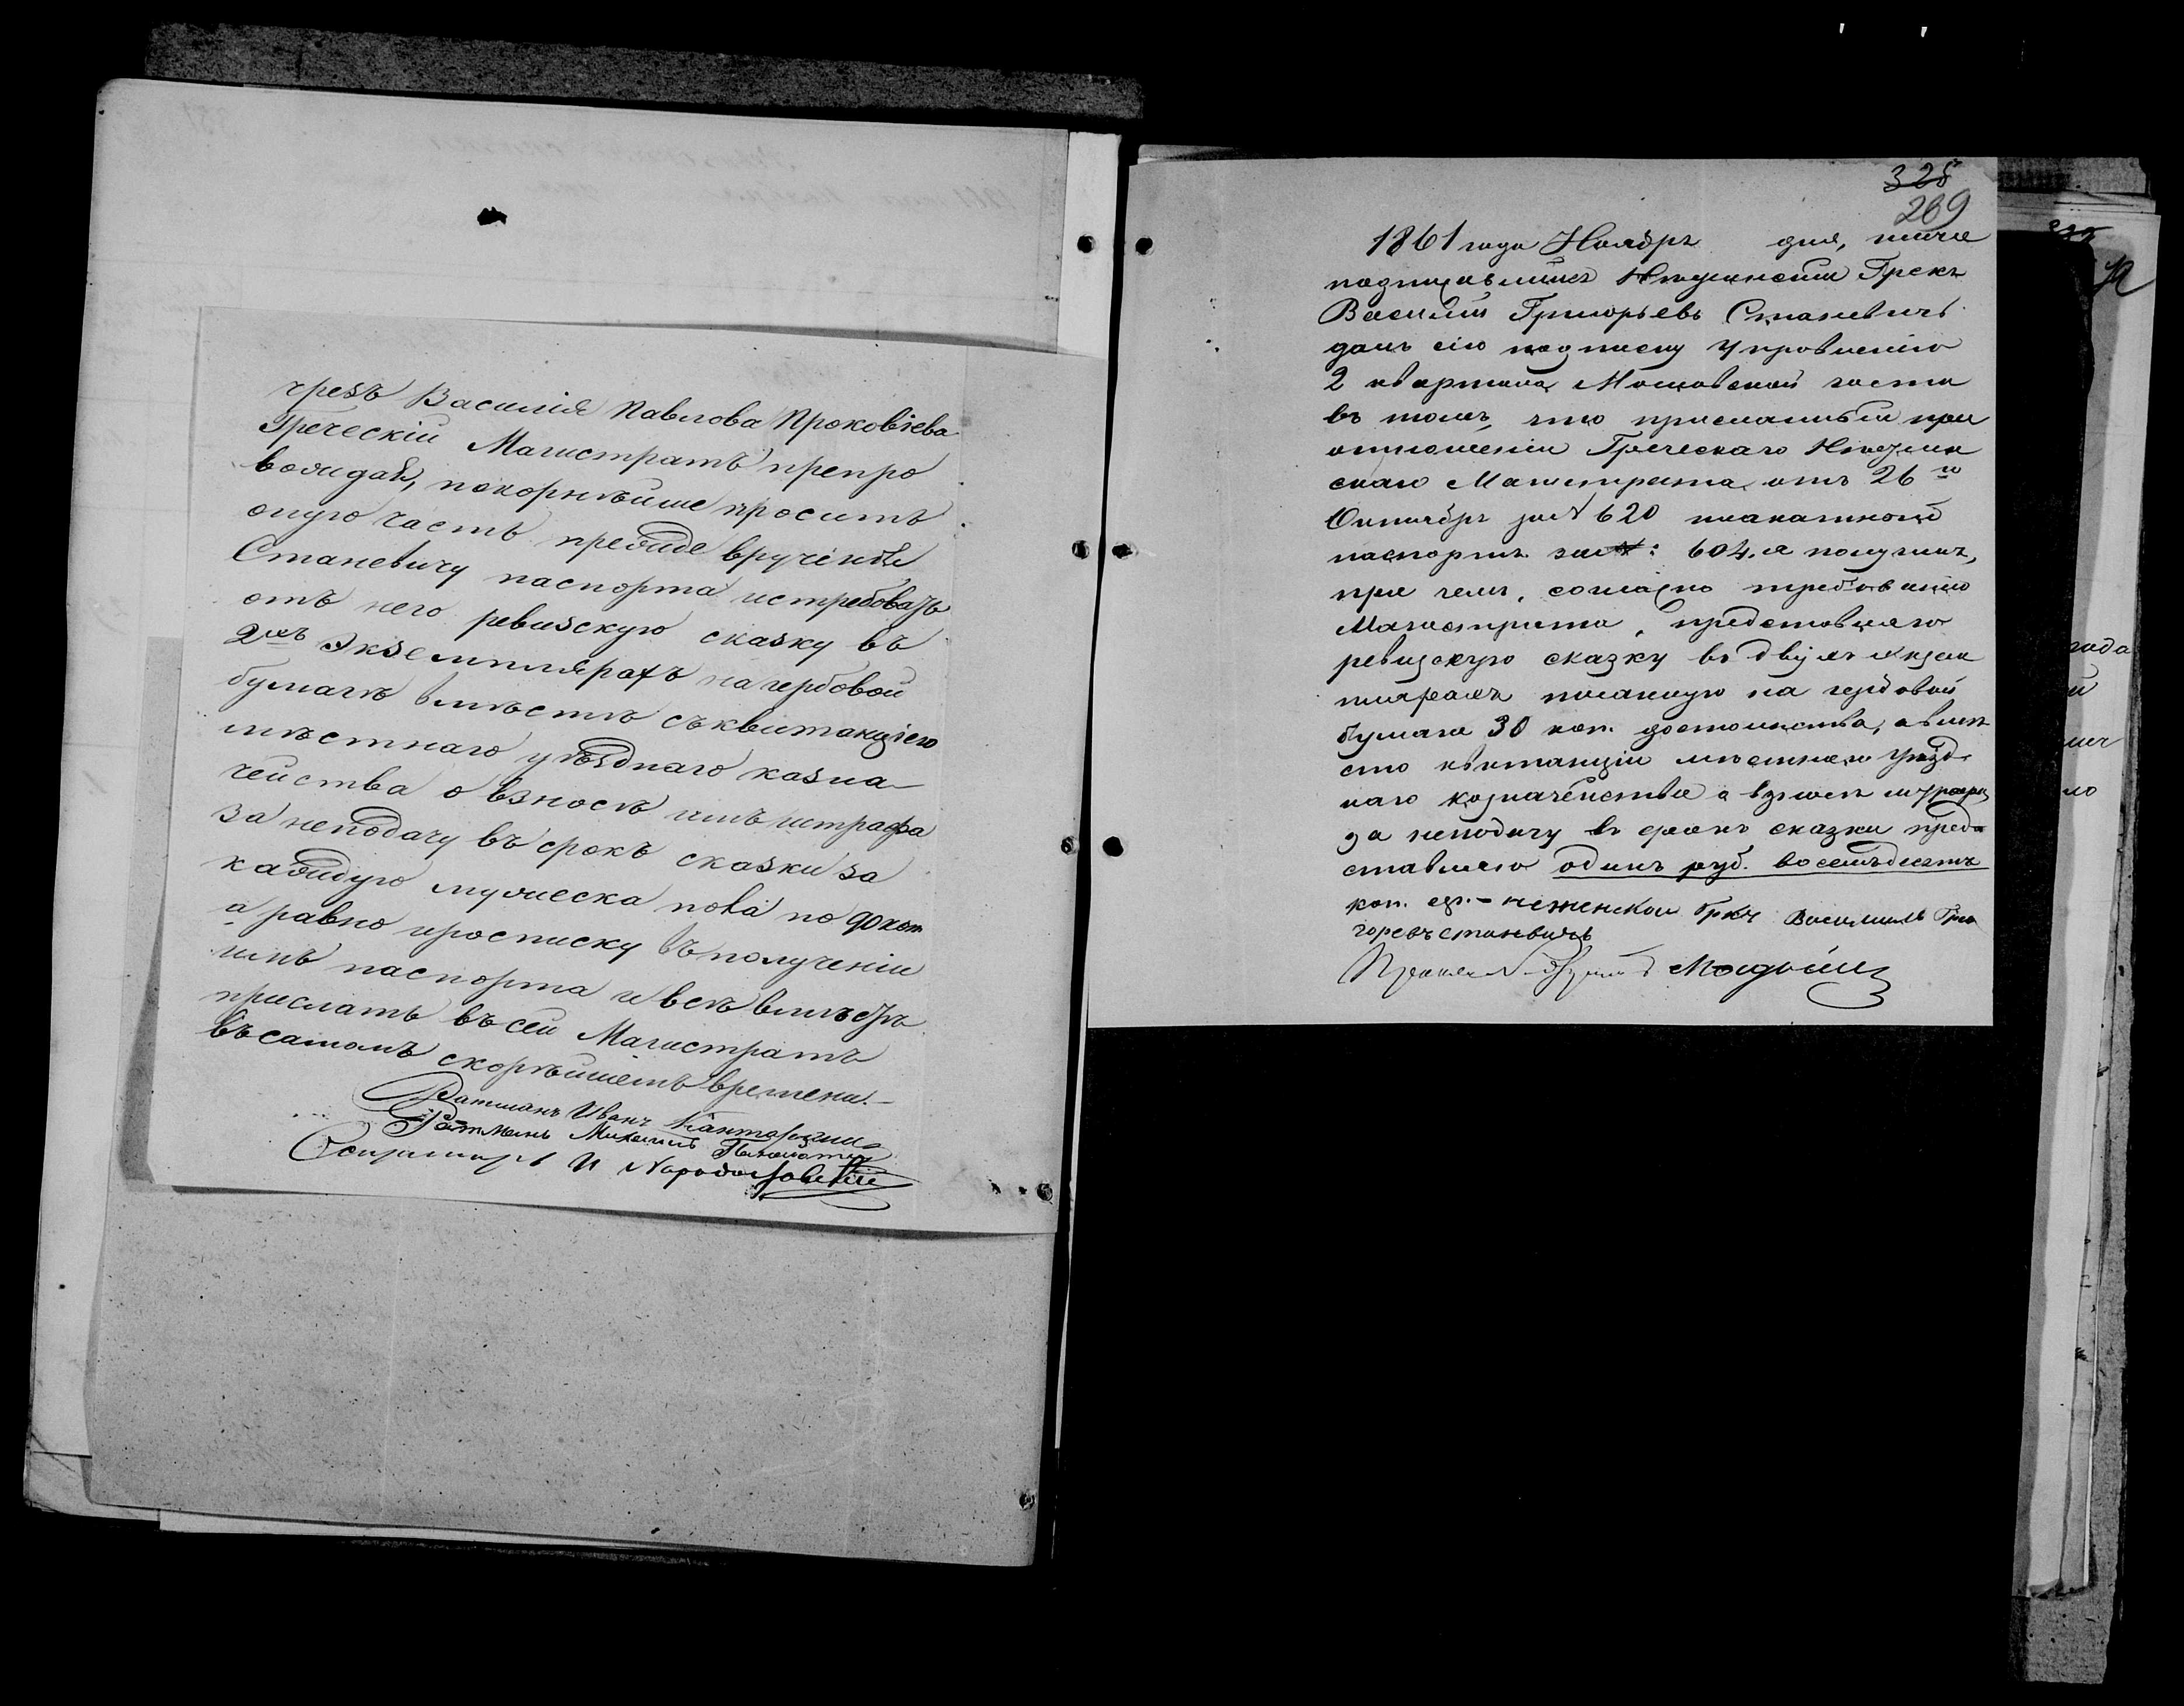 чрезъ Василія Павлова Проковіева
Греческій Магистратъ препро
вождая, покорнѣйше проситъ
оную часть прежде врученія
Станевичу паспорта истребовать
отъ него ревизскую сказку въ
2хъ экземплярахъ на гербовой
бумагѣ вмѣстѣ съ квитанціею
мѣстнаго уѣзднаго казна
чейства о взносѣ имъ штрафа
за неподачу въ срокъ сказки за
каждую мужеска пола по 90 коп
а равно и росписку въ полученіи
имъ паспорта и все вмѣстѣ
прислать въ сей Магистратъ
въ самомъ скорѣйшемъ времени.-
Ратманъ Иванъ
Ратманъ Михаилъ
Секретарь И
325
269
1861 года Ноября дня, ниже
подписавшійся Нѣжинскій Грекъ
Василій Григорьевъ Станевичъ
далъ сію подписку Управленію
2 квартала Московской части
въ томъ, что присланный при
отношеніи Греческаго Нѣжин
скаго Магистрата отъ 26го
Октября за № 620 плакатной
паспортъ за №: 604. я получилъ,
при чемъ, согласно требованію
Магистрата, представляю
ревизскую сказку въ двухъ экзем
плярахъ писанную на гербовой
бумаге 30 коп. достоинства, а вмѣ
сто квитанціи мѣстнаго Уѣзд
наго казначейства о взносѣ штрафа
за неподачу въ срокъ сказки пред
ставляю одинъ руб. восемьдесятъ
коп. сер. - неженскои Грекъ Василий Гри
горевъ Станевичъ
года
й
ло